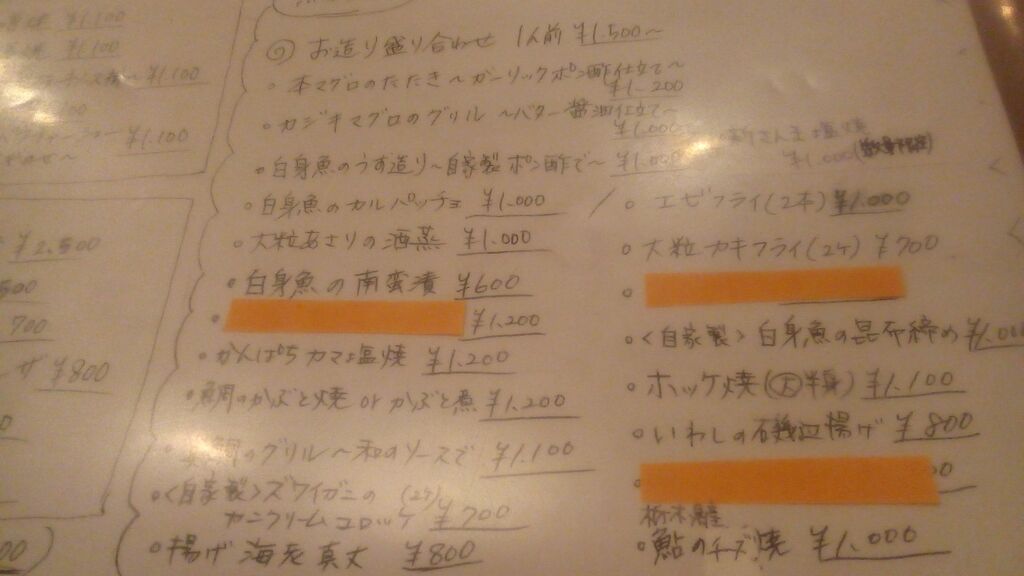 ¥1.100
¥1.100
¥1.100
¥1.100
¥2.500
500
700
¥800
お造り盛り合わせ 1人前 ¥1.500〜
・本マグロのたたき〜ガーリックポン酢仕立て〜
¥1.200
・カジキマグロのグリル 〜バター醤油仕立て〜
¥1.000
・白身魚のうす造り〜自家製ポン酢で〜 ¥1.000
・白身魚のカルパッチョ ¥1.000
・大粒あさりの酒蒸 ¥1.000
・白身魚の南蛮漬 ¥600
・ ¥1.200
・かんぱちカマ塩焼 ¥1.200
・鯛のかぶと焼 orかぶと煮 ¥1.200
のグリル〜和のソースで ¥1.100
・<自家製>ズワイガニの (2ケ)
カニクリームコロッケ ¥700
・揚げ海老真丈 ¥800
新さんま塩焼
¥1.000
・エビフライ(2本) ¥1.000
・大粒カキフライ(2ケ) ¥700
・<自家製>白身魚の昆布締め ¥1.000
・ホッケ焼(大半身) ¥1.100
・いわしの磯辺揚げ ¥800
栃木産
・鮎のチーズ焼 ¥1.000